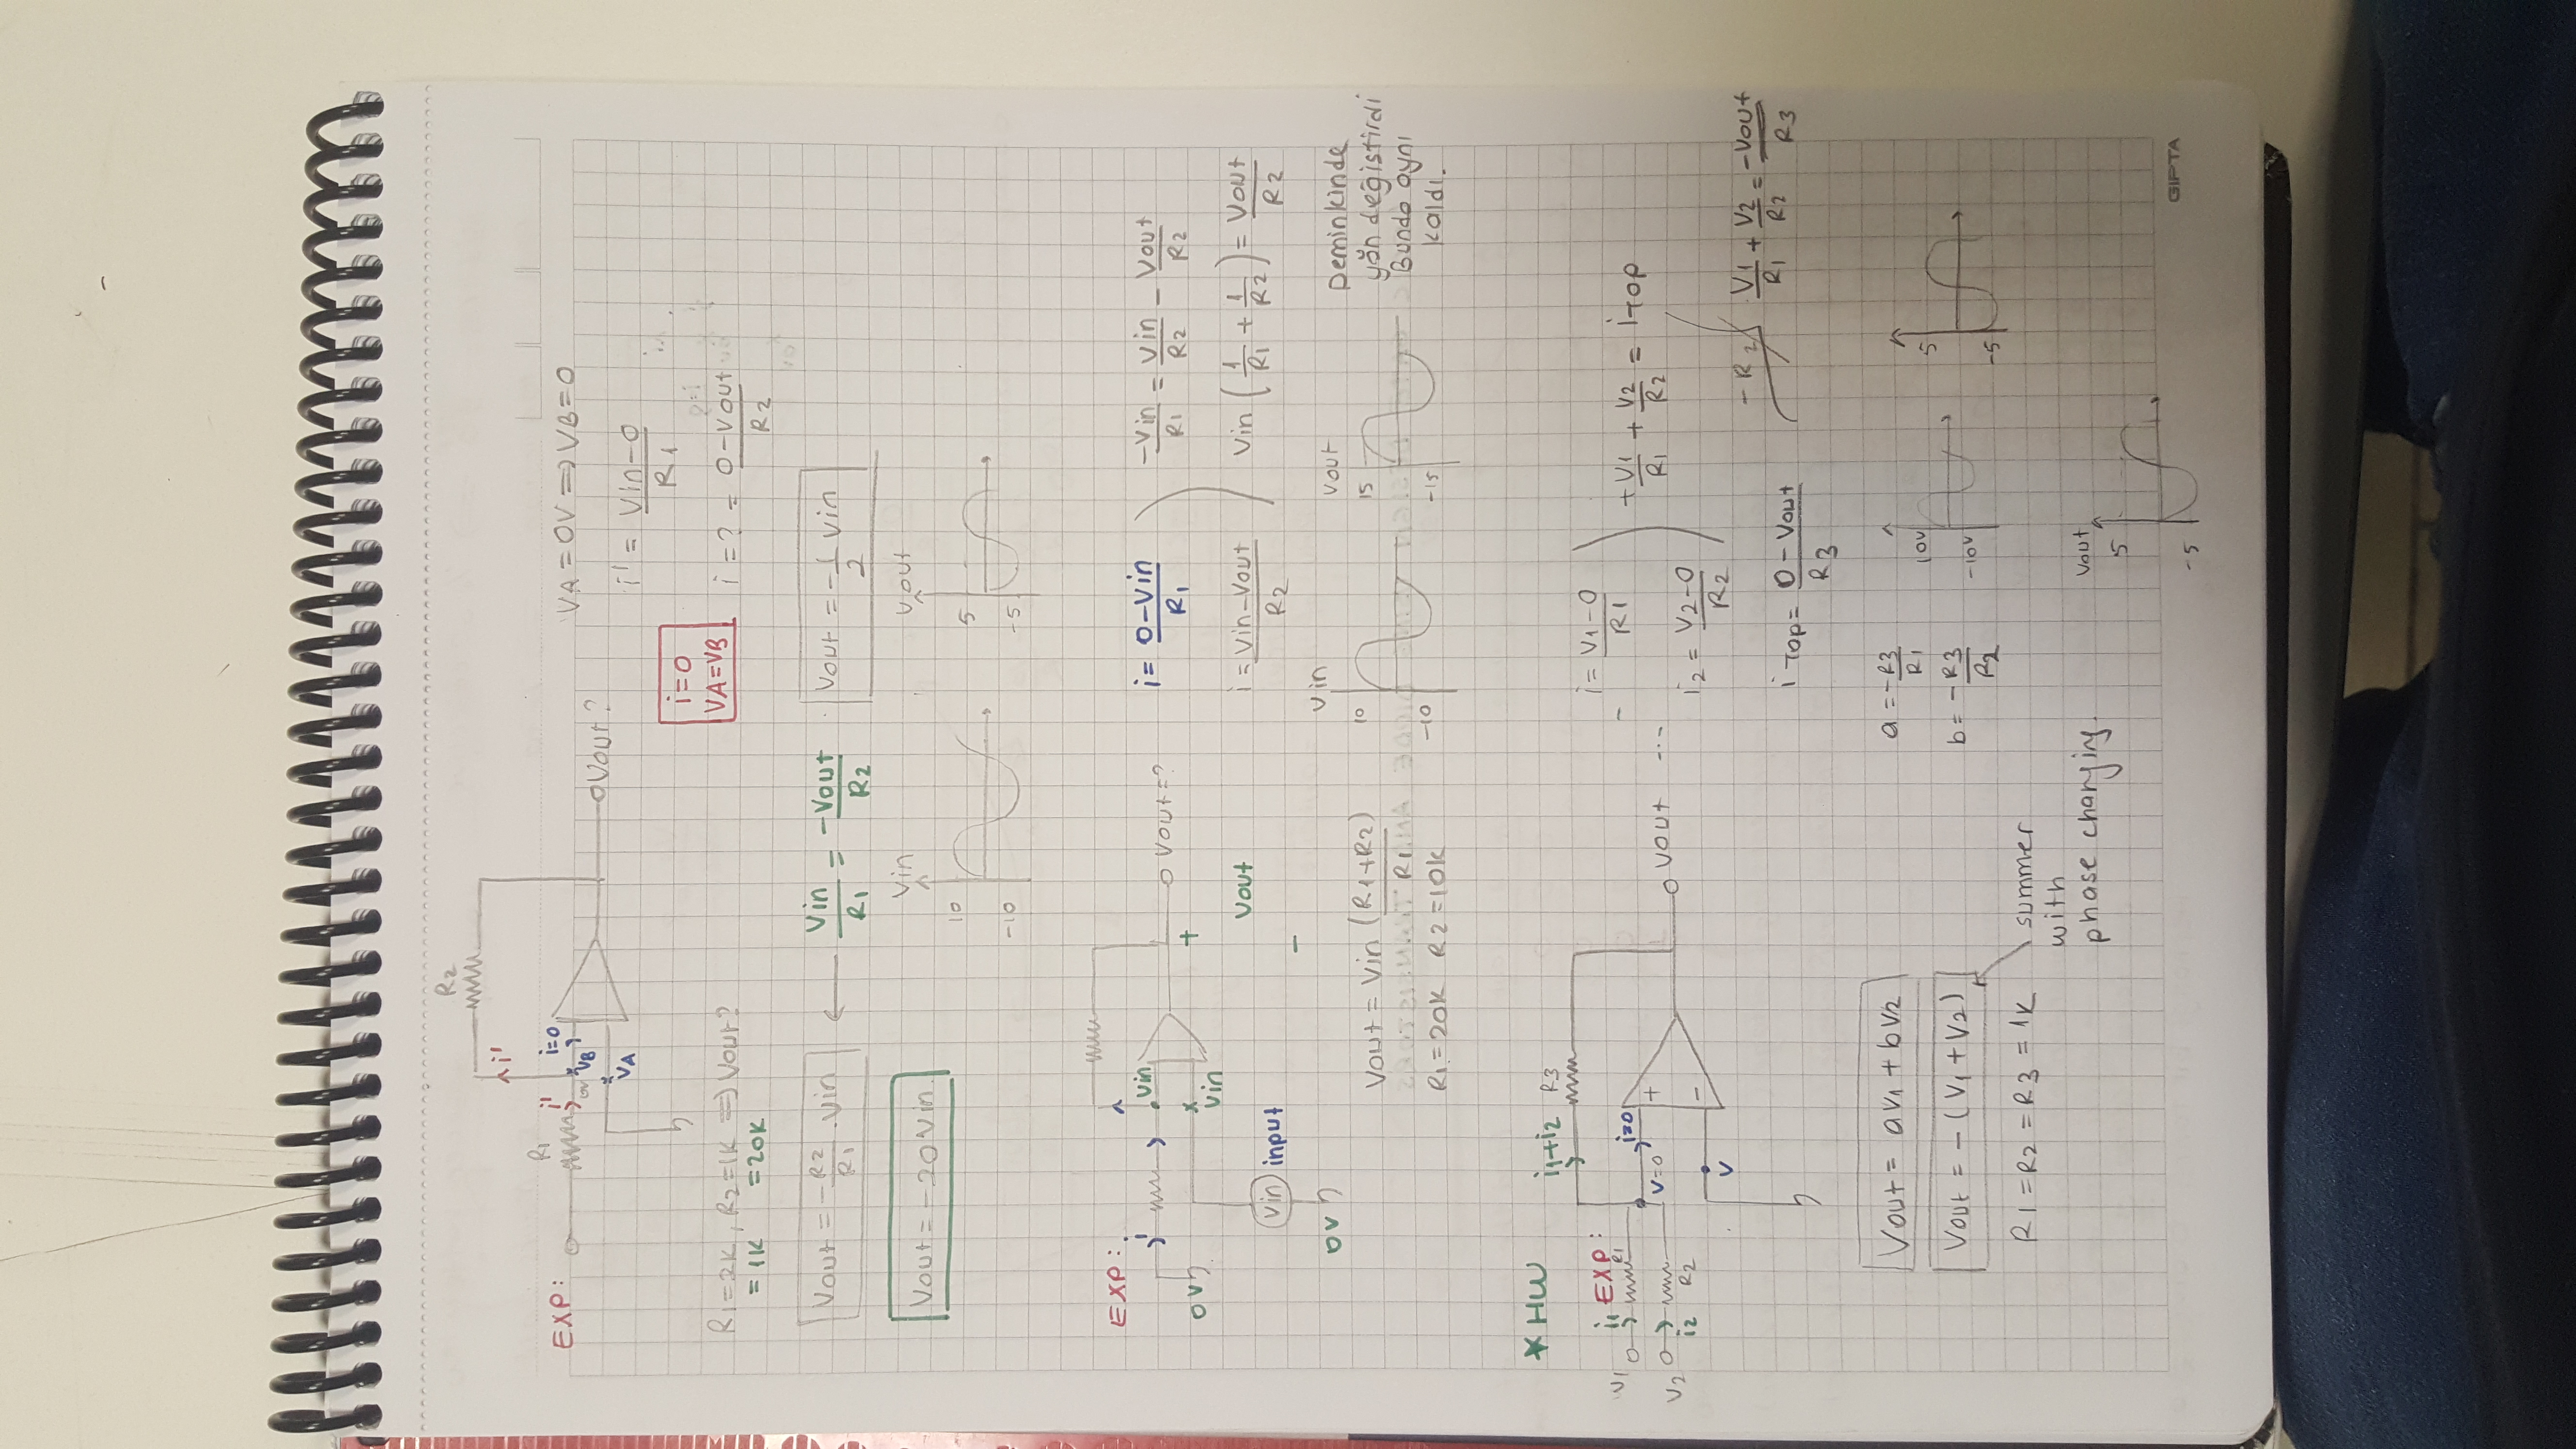 R2
i'
EXP: R1 i' i=0
0V VB
VA
Vout?
VA=0V => VB=0
i' = Vin-0 / R1
i=0
VA=VB
i=? = 0-Vout / R2
R1=2K, R2=1K => Vout?
=1K =20K
Vout = -R2/R1 . Vin ← Vin/R1 = -Vout/R2
Vout = -1/2 Vin
Vout = -20Vin
Vin
10
-10
Vout
5
-5
EXP:
i
Vin
0V
Vin
Vout=?
+
Vout
-
Vin input
0V
i = 0-Vin / R1
i = Vin-Vout / R2
-Vin/R1 = Vin/R2 - Vout/R2
Vin (1/R1 + 1/R2) = Vout/R2
Vout = Vin (R1+R2) / R1
R1=20K R2=10K
Vin
10
-10
Vout
15
-15
Deminkinde
yön değiştirdi
Bunda aynı
kaldı.
★ HW
i1+i2 R3
EXP:
V1 i1 R1
V2 i2 R2
V=0 i=0
+
-
V
Vout ...
i = V1-0 / R1
i2 = V2-0 / R2
+V1/R1 + V2/R2 = iTop
iTop = 0-Vout / R3
-R2
V1/R1 + V2/R2 = -Vout/R3
Vout = aV1 + bV2
Vout = -(V1+V2)
R1=R2=R3=1K
summer
with
phase changing.
a = -R3/R1
b = -R3/R2
10V
-10V
5
-5
Vout
5
-5
GIPTA